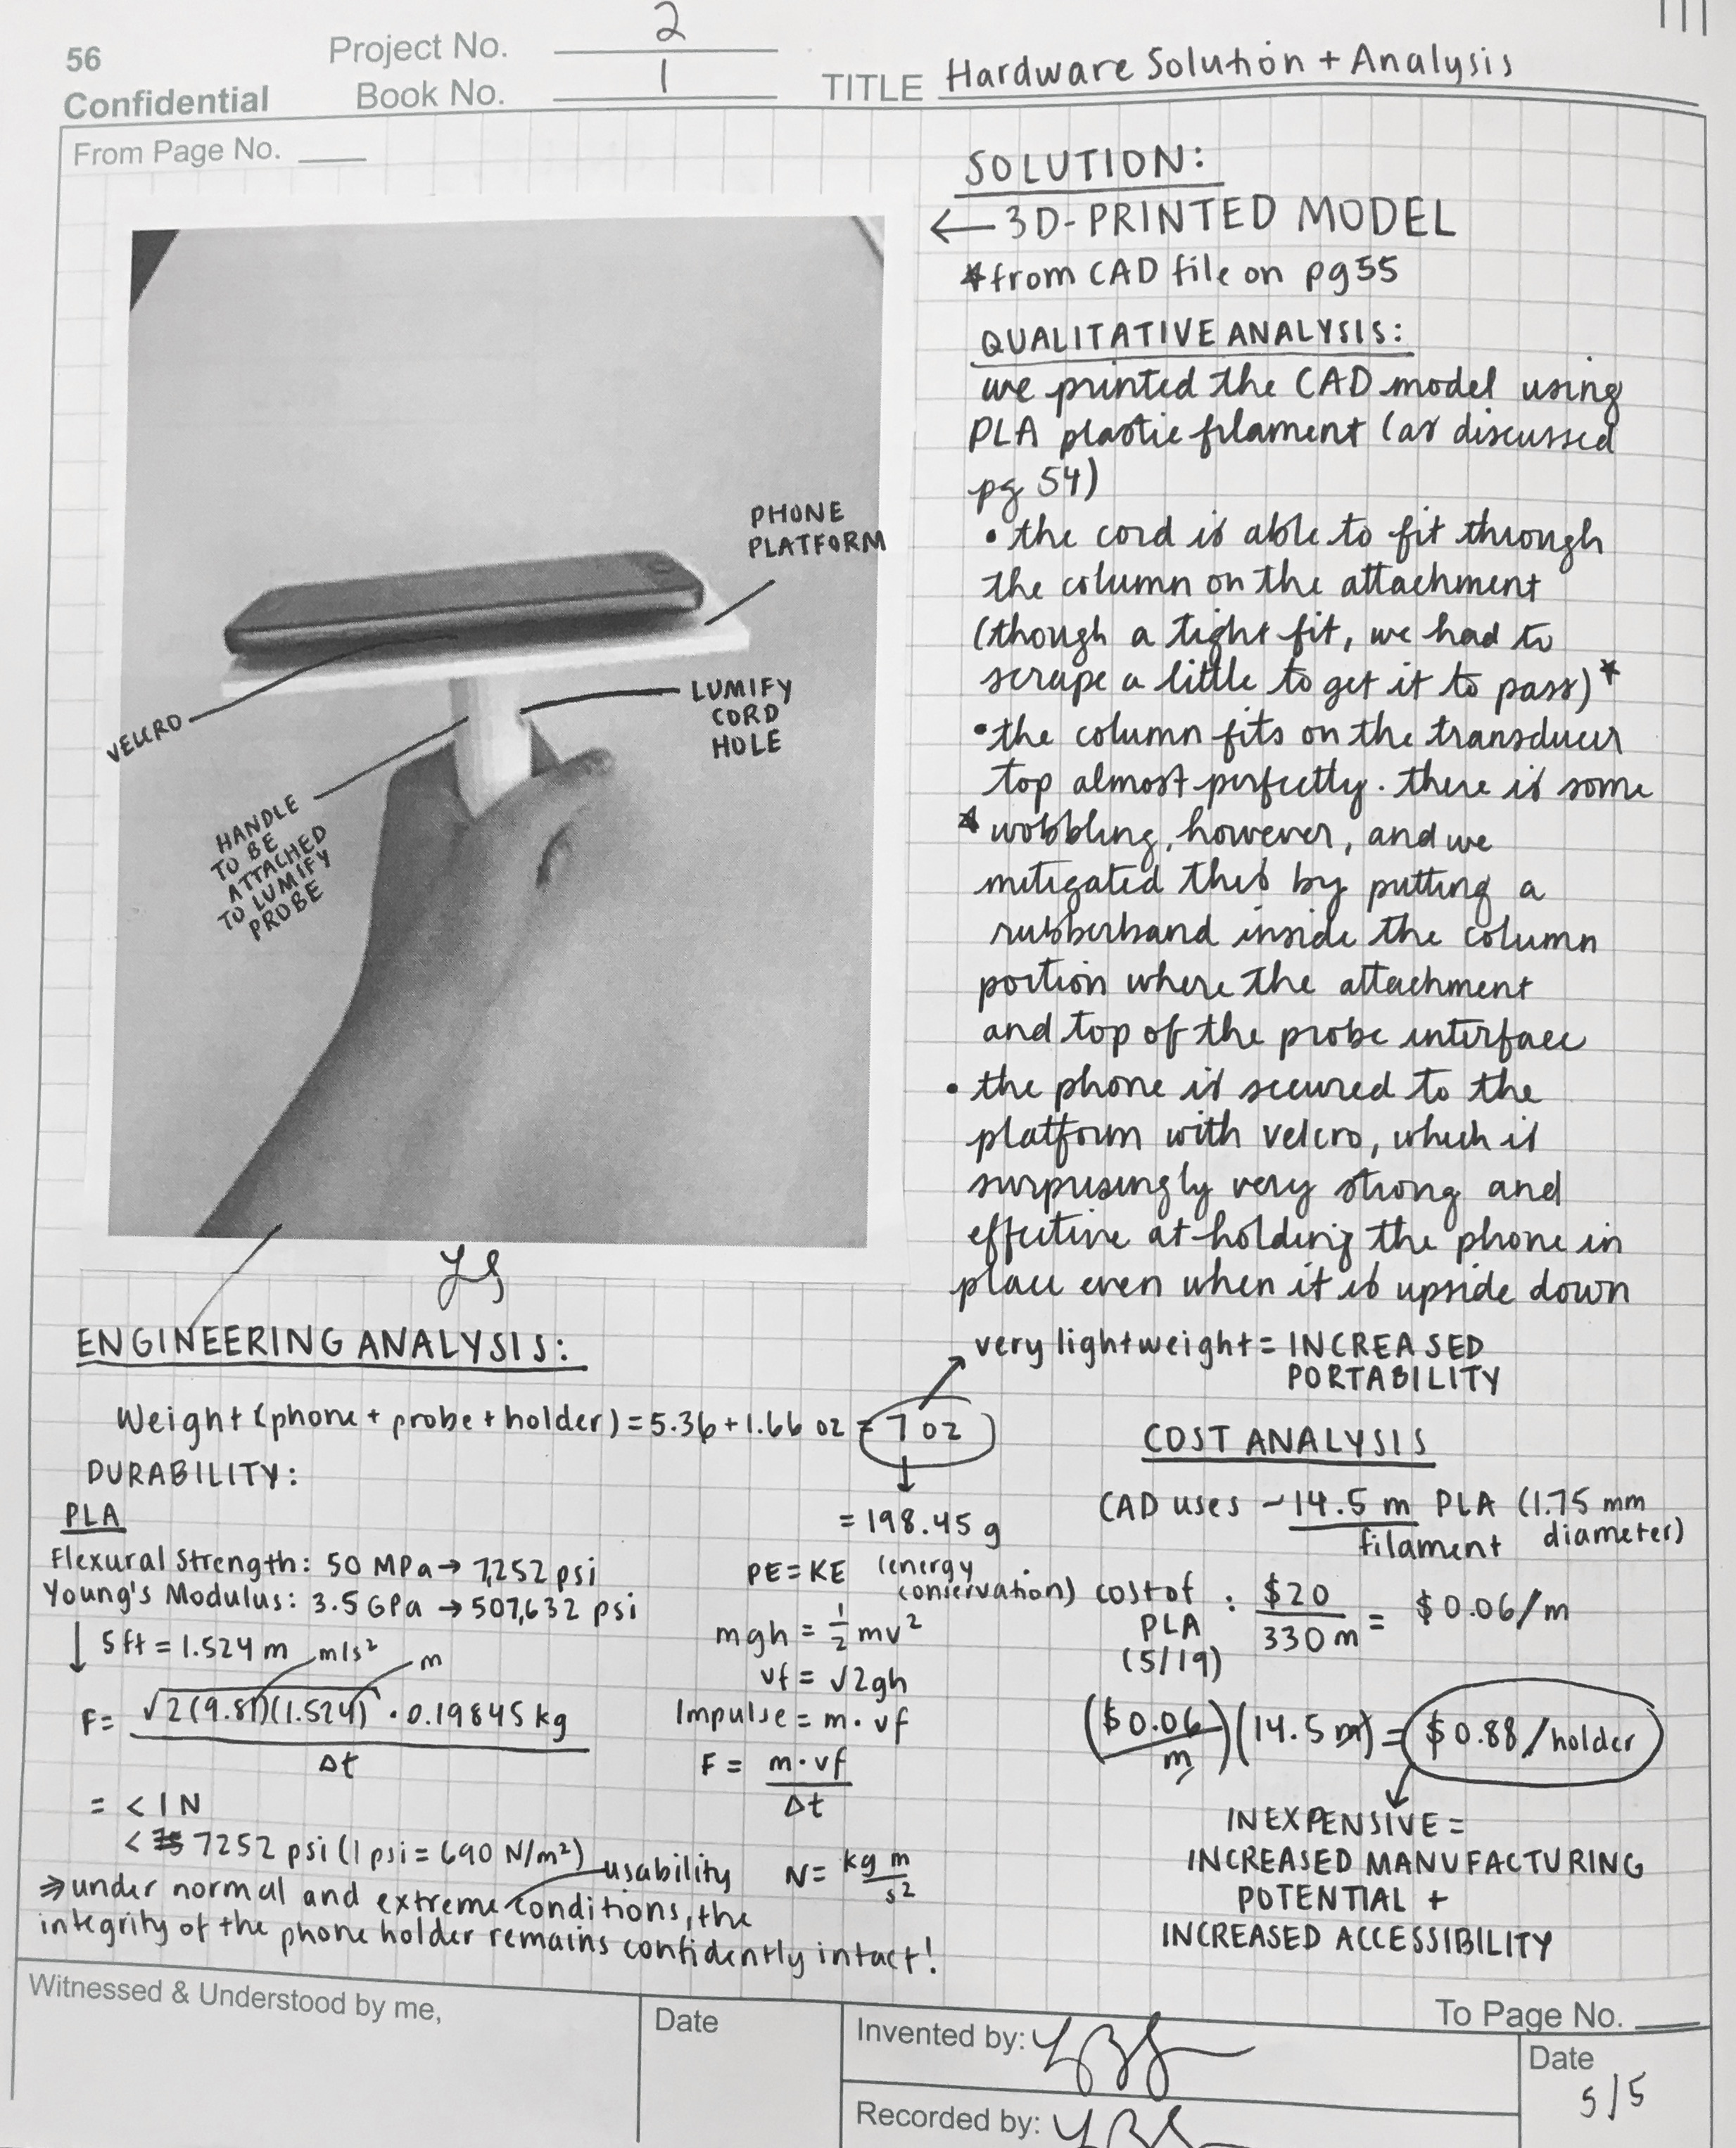 56
Confidential
Project No. 2
Book No. 1
TITLE Hardware Solution + Analysis
From Page No.
SOLUTION:
← 3D-PRINTED MODEL
*from CAD file on pg 55
QUALITATIVE ANALYSIS:
we printed the CAD model using
PLA plastic filament (as discussed
pg 54)
• the cord is able to fit through
the column on the attachment
(though a tight fit, we had to
scrape a little to get it to pass)*
• the column fits on the transducer
top almost perfectly. there is some
* wobbling, however, and we
mitigated this by putting a
rubberband inside the column
portion where the attachment
and top of the probe interface
• the phone is secured to the
platform with velcro, which is
surprisingly very strong and
effective at holding the phone in
place even when it is upside down
PHONE
PLATFORM
VELCRO
LUMIFY
CORD
HOLE
HANDLE
TO BE
ATTACHED
TO LUMIFY
PROBE
ENGINEERING ANALYSIS:
very lightweight = INCREASED
PORTABILITY
Weight (phone + probe + holder) = 5.36 + 1.66 oz = 7 oz
= 198.45 g
DURABILITY:
PLA
Flexural Strength: 50 MPa → 7,252 psi
Young's Modulus: 3.5 GPa → 507,632 psi
↓ 5 ft = 1.524 m m/s² m
F = √2(9.81)(1.524) · 0.19845 kg
Δt
= < 1 N
< 7252 psi (1 psi = 690 N/m²)
⇒ under normal and extreme usability conditions, the
integrity of the phone holder remains confidently intact!
PE = KE (energy
conservation)
mgh = ½ mv²
vf = √2gh
Impulse = m · vf
F = m · vf
Δt
N = kg m
s²
COST ANALYSIS
CAD uses ~14.5 m PLA (1.75 mm
filament diameter)
cost of
PLA
(5/19)
: $20
330 m
= $0.06/m
($0.06
m) (14.5 m) = $0.88/holder
INEXPENSIVE =
INCREASED MANUFACTURING
POTENTIAL +
INCREASED ACCESSIBILITY
Witnessed & Understood by me,
Date
Invented by:
Recorded by:
To Page No.
Date
5/5